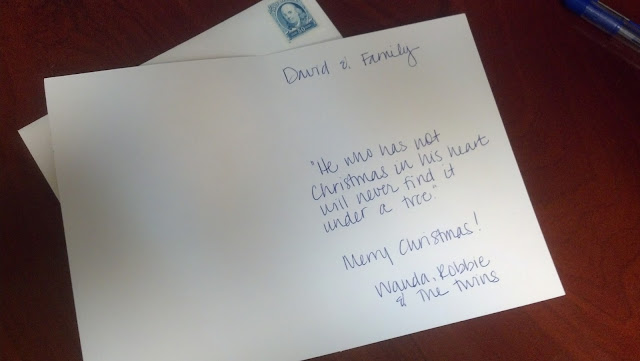 David & Family
"He who has not
Christmas in his heart
will never find it
under a tree."
Merry Christmas!
Wanda, Robbie
& The Twins